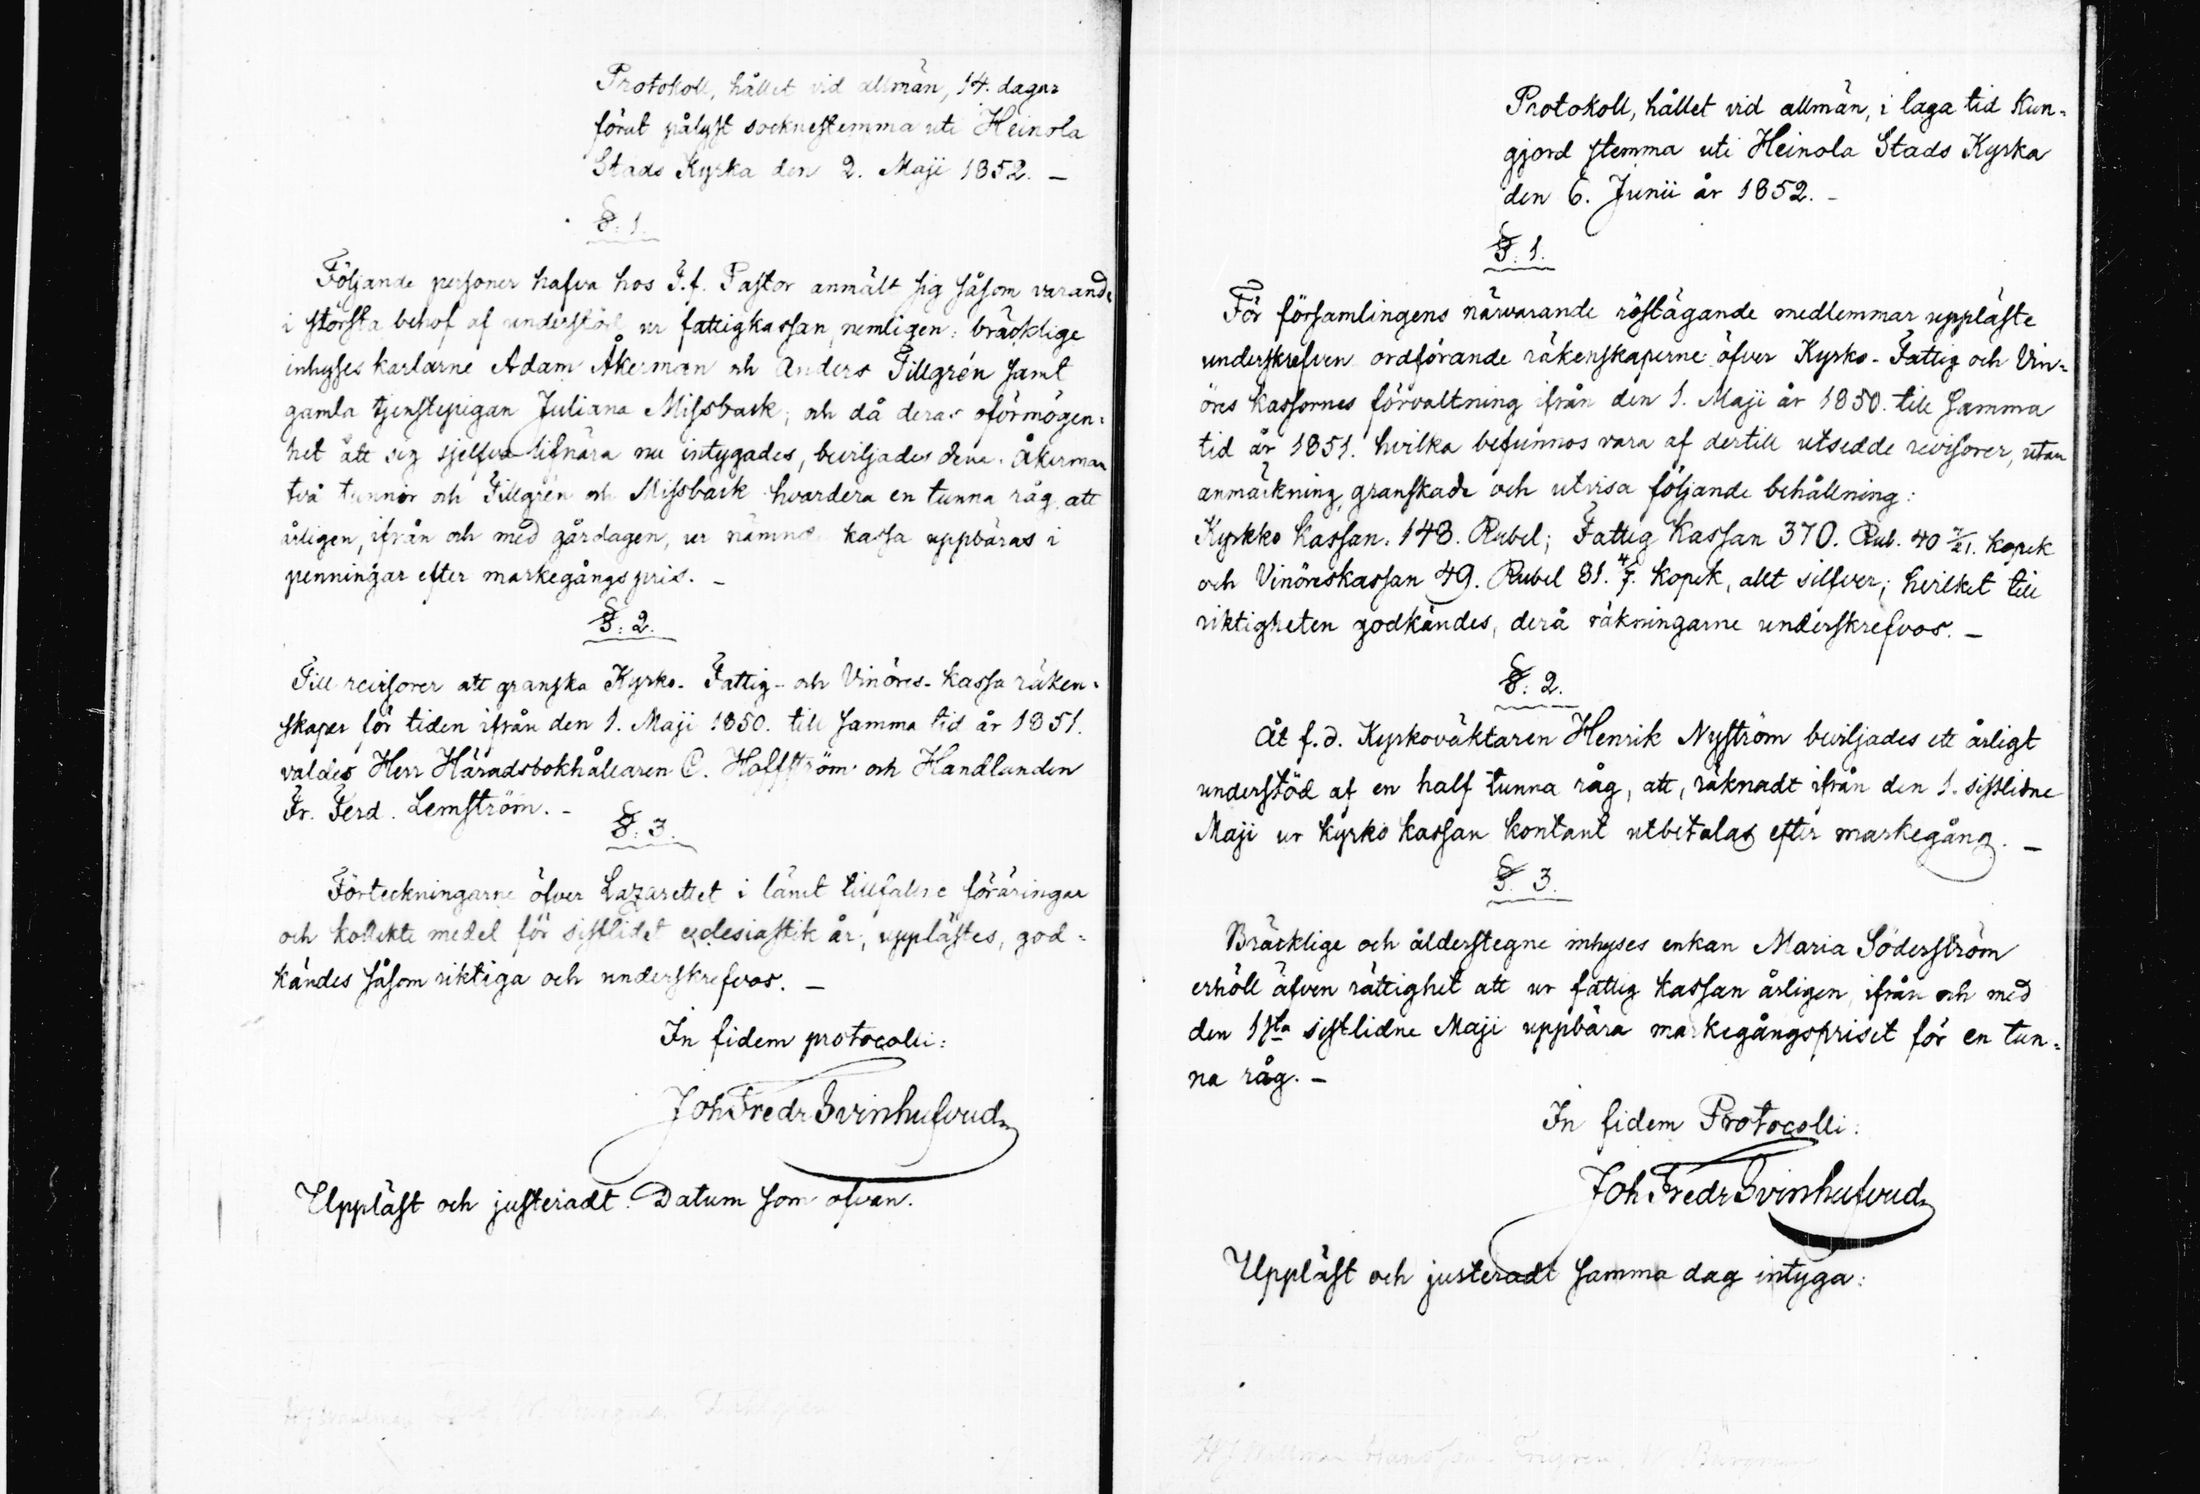 Protokoll, hållet vid allmän, 14. dagar
förut pålyst socknestemma uti Heinola
Stads Kyrka den 2. Maji 1852. –
§: 1.
Följande personer hafva hos T.f. Pastor anmält sig såsom varande
i största behof af understöd ur fattigkassan, nemligen: bräcklige
inhyses karlarne Adam Åkerman och Anders Tillgrén samt
gamla tjenstepigan Juliana Missback; och då deras oförmögen=
het att sig sjelfva lifnära nu intygades, beviljades Åkerman
två tunnor och Tillgrén och Missback hvardera en tunna råg, att
årligen, ifrån och med gårdagen, ur nämnde kassa uppbäras i
penningar efter markegångspris. –
§: 2.
Till revisorer att granska Kyrko- Fattig- och Vinöres- kassa räken=
skaper för tiden ifrån den 1. Maji 1850. till samma tid år 1851.
valdes Herr Häradsbokhållaren C. Hoffström och Handlanden
Fr. Ferd. Lemström. –
§: 3.
Förteckningarne öfver Lazarettet i länet tillfallne föräringar
och kollekte medel för sistlidet ecclesiastik år, upplästes, god=
kändes såsom riktiga och underskrefvos. –
In fidem protocolli:
Joh Fredr Svinhufvud
Uppläst och justeradt. Datum som ofvan.
Protokoll, hållet vid allmän, i laga tid kun=
gjord stemma uti Heinola Stads Kyrka
den 6. Junii år 1852. –
§. 1.
För församlingens närvarande röstägande medlemmar uppläste
underskrefven ordförande räkenskaperne öfver Kyrko- Fattig och Vin=
öres kassornes förvaltning ifrån den 1. Maji år 1850. till samma
tid år 1851. hvilka befunnos vara af dertill utsedde revisorer, utan
anmärkning, granskade och utvisa följande behållning:
Kyrko kassan. 148. Rubel; Fattig kassan 370. Rub. 40 2/21. kopek
och Vinöreskassan 49. Rubel 81. 4/7. kopek, allt silfver; hvilket till
riktigheten godkändes, derå räkningarne underskrefvos. –
§: 2.
Åt f.d. Kyrkoväktaren Henrik Nyström beviljades ett årligt
understöd af en half tunna råg, att, räknadt ifrån den 1. sistlidne
Maji ur kyrko kassan kontant utbetalas efter markegång. –
§. 3.
Bräcklige och ålderstegne inhyses enkan Maria Söderström
erhöll äfven rättighet att ur fattig kassan årligen, ifrån och med
den 1sta sistlidne Maji uppbära markegångspriset för en tun=
na råg. –
In fidem Protocolli:
Joh Fredr Svinhufvud
Uppläst och justeradt samma dag intyga: